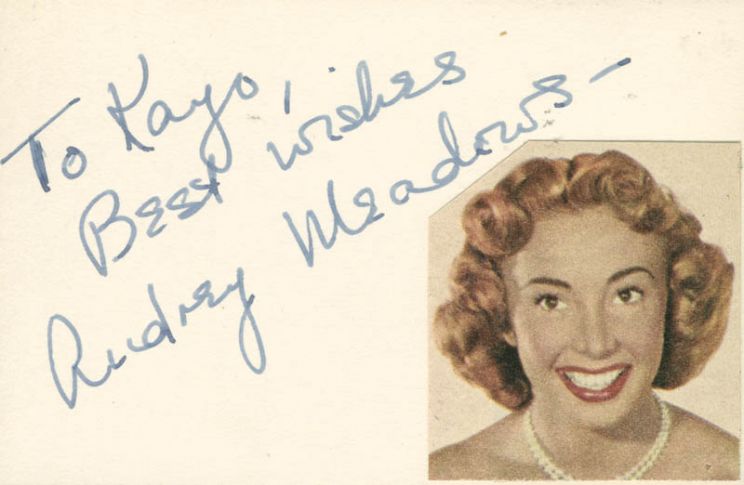 To Kayo,
Best wishes
Audrey Meadows -